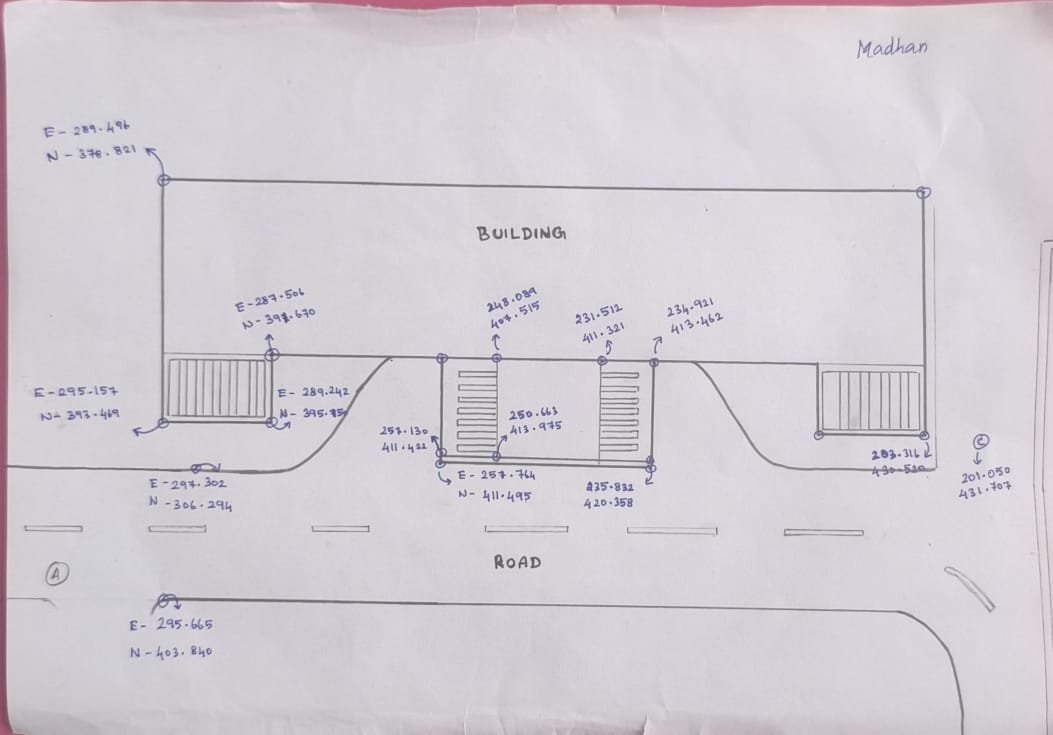 Madhan
E- 289.496
N - 378.821
BUILDING
E-287.506
N-391.670
248.089
407.515
231.512
411.321
234.921
413.462
E-295.157
N- 393.469
E- 289.242
257.130
411.422
250.663
413.975
E- 257.764
N- 411.495
235.832
420.358
203.316
430.520
C
201.050
431.707
E-297.302
N -306.294
A
ROAD
E- 295.665
N -403.840